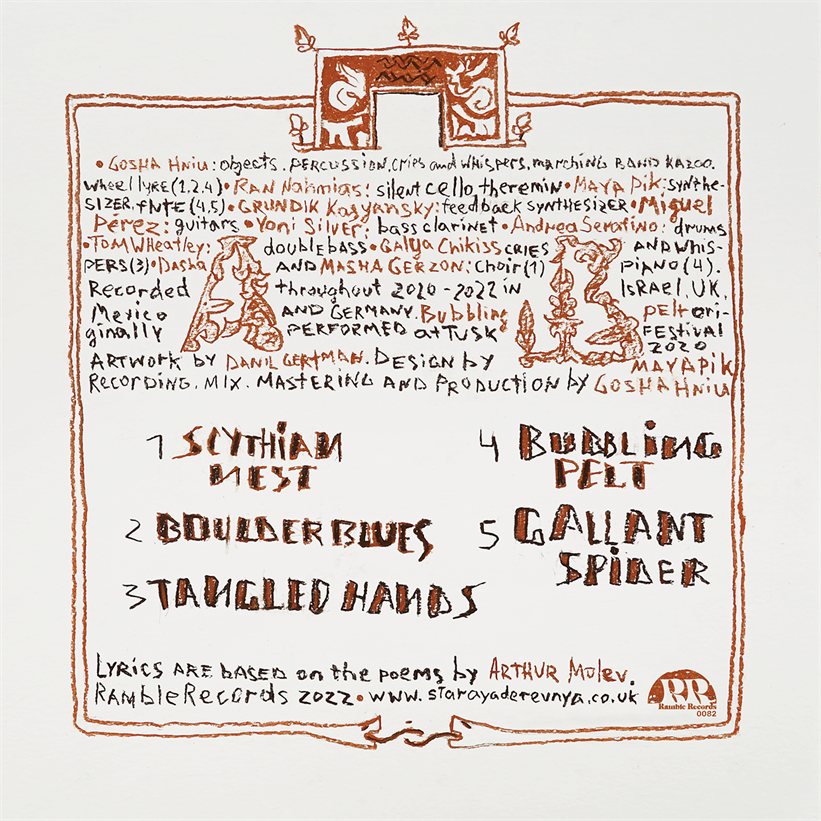 • GOSHA HNIU: objects, PERCUSSION, CRIES and WHISPERS, MARCHING BAND KAZOO,
WHEEL LYRE (1,2,4) • RAN NAHMIAS: silent cello, theremin • MAYA PIK: SYNTHE-
SIZER, FLUTE (4,5) • GRUNDIK KASYANSKY: feedback SYNTHESIZER • Miguel
Pérez: guitars • Yoni Silver: bass clarinet • Andrea Serafino: drums
• TOM WHEATLEY: double bass • Galya Chikiss CRIES AND WHIS-
PERS (3) • Dasha AND MASHA GERZON: Choir (1) PIANO (4).
Recorded throughout 2020 - 2022 in ISRAEL, UK,
Mexico AND GERMANY. Bubbling pelt ori-
ginally PERFORMED at TUSK FESTIVAL
2020
A B
ARTWORK BY DANIL GERTMAN. DESIGN by MAYA PIK
RECORDING, MIX, MASTERING AND PRODUCTION by GOSHA HNIU
1 SCYTHIAN
NEST
2 BOULDER BLUES
3 TANGLED HANDS
4 BUBBLING
PELT
5 GALLANT
SPIDER
LYRICS ARE BASED on the poems by ARTHUR Molev.
Ramble Records 2022 • www.starayaderevnya.co.uk
RR
Ramble Records
0082